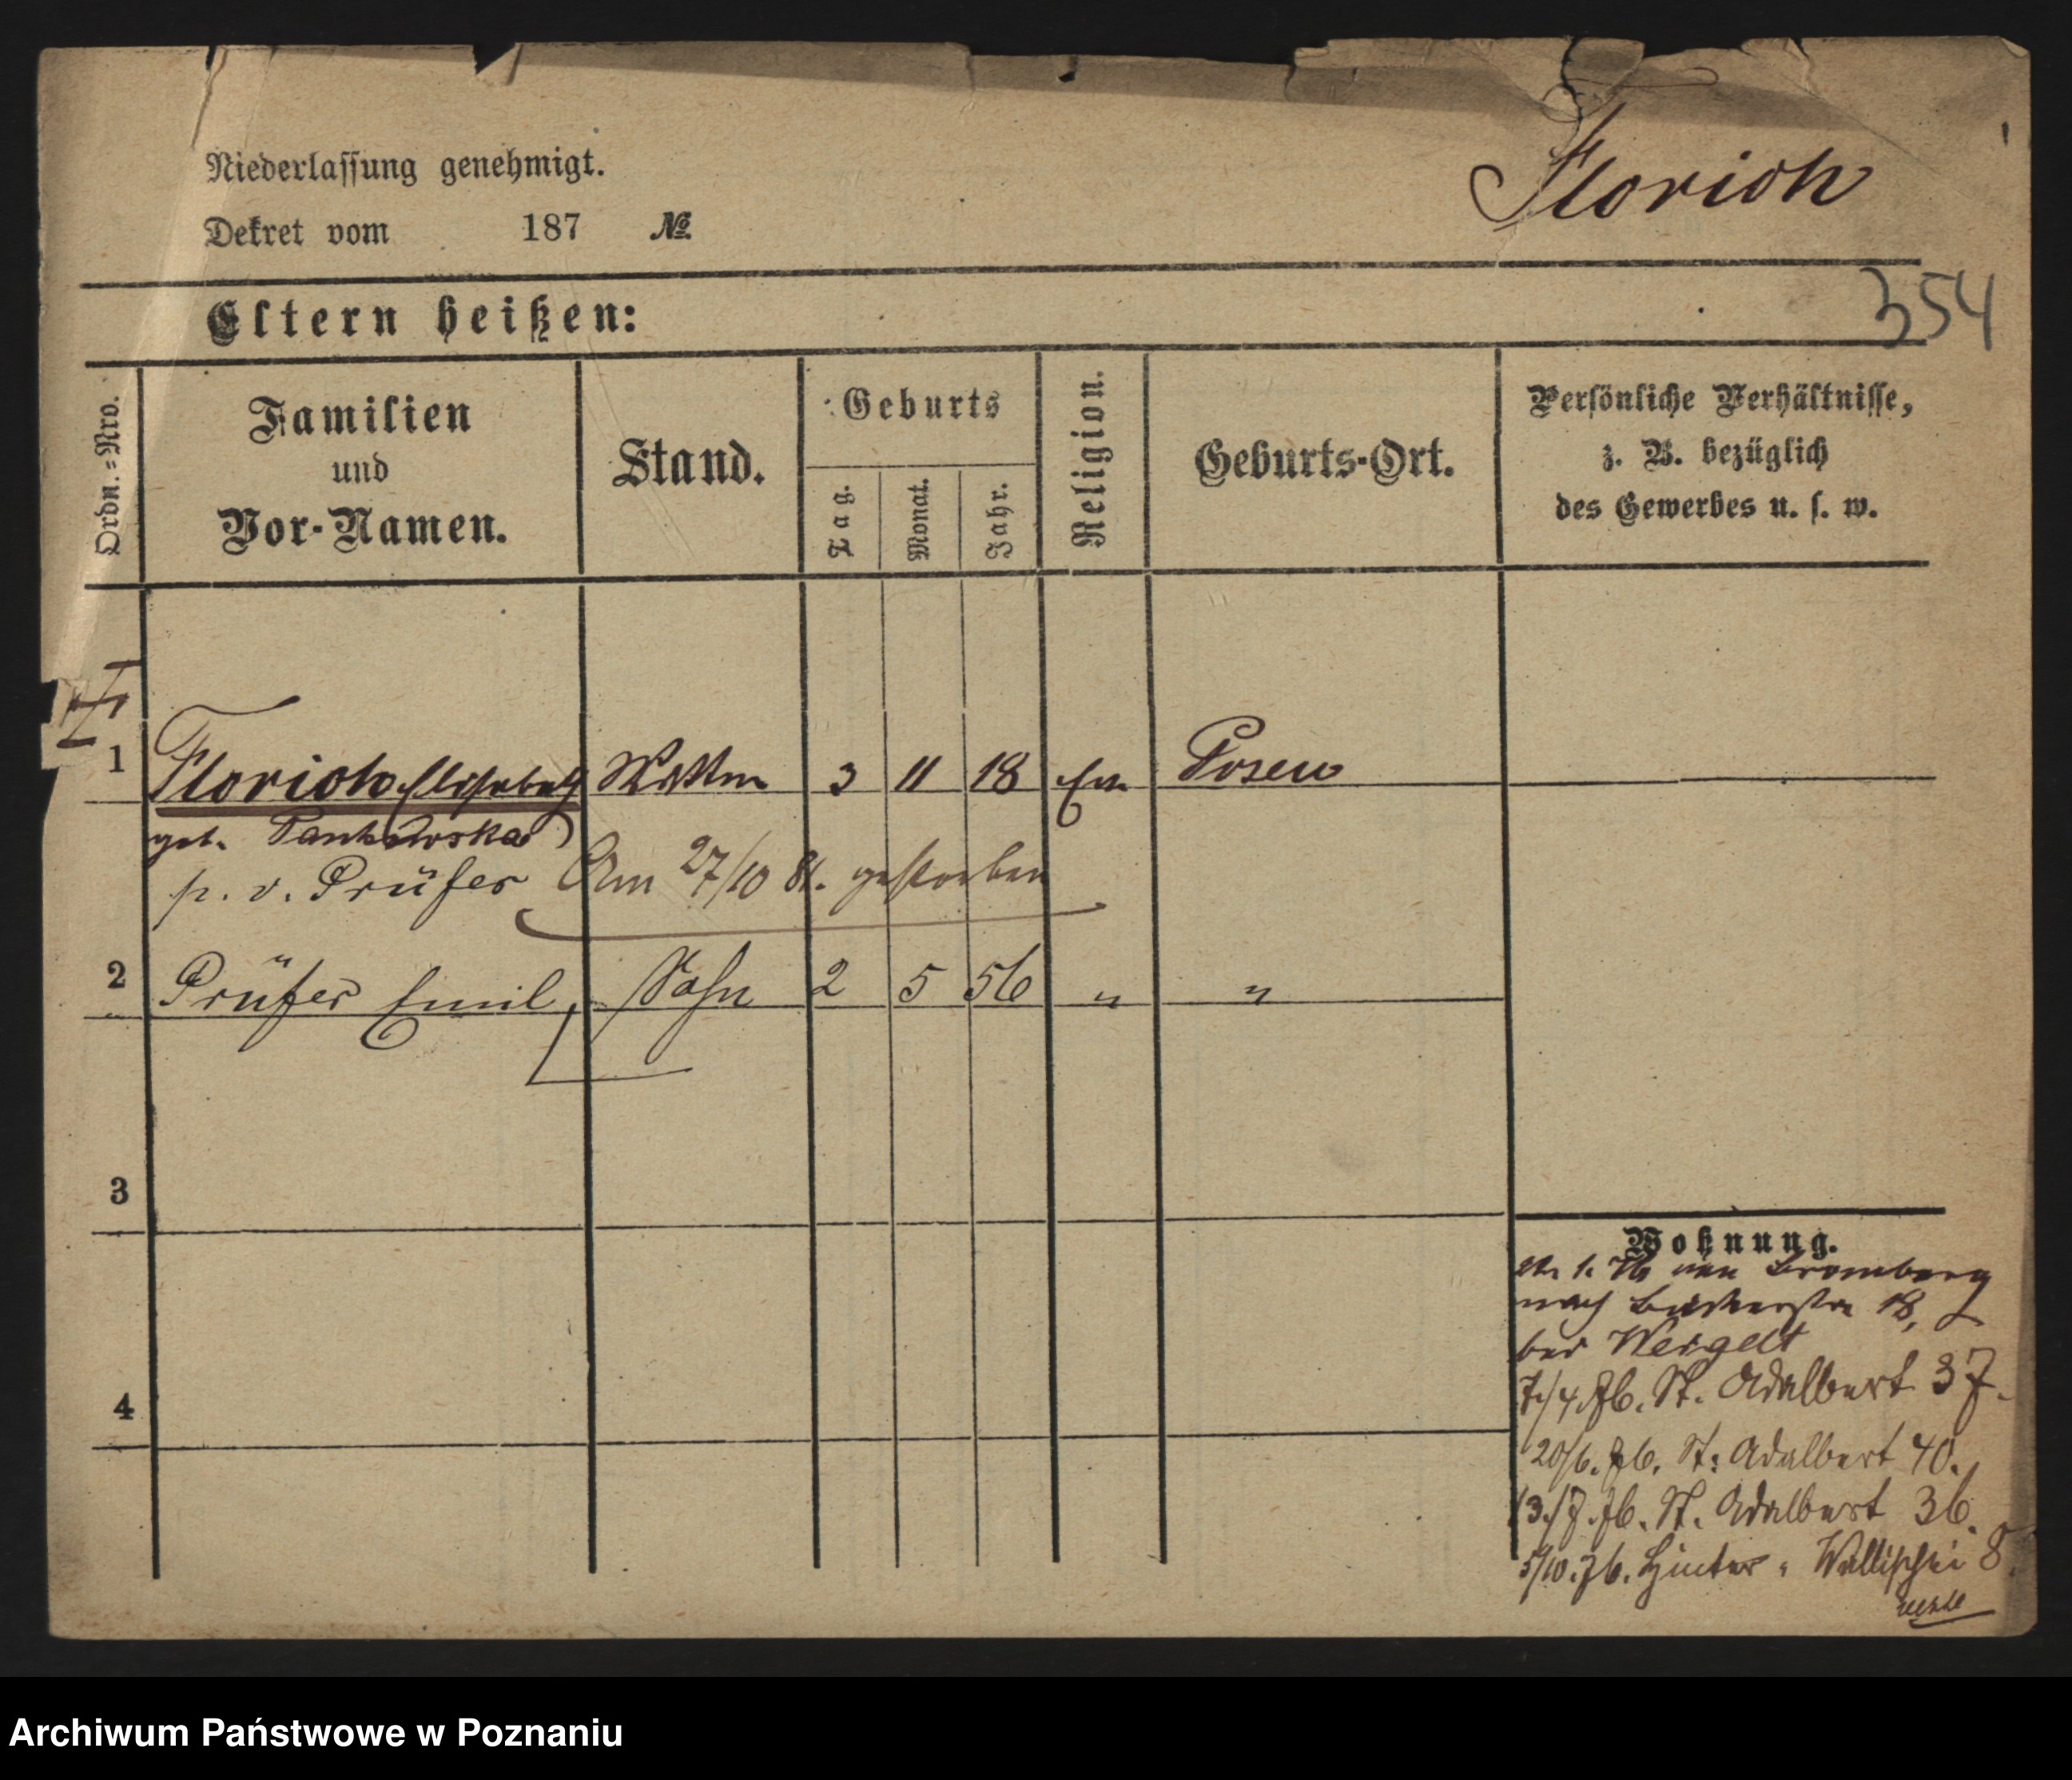 Niederlassung genehmigt.
Dekret vom 187 №
Florich
354
Eltern heißen:
Ordn.=Nro.
Familien und Vor-Namen.
Stand.
Geburts
Tag.
Monat.
Jahr.
Religion.
Geburts-Ort.
Persönliche Verhältnisse,
z. B. bezüglich
des Gewerbes u. s. w.
1 Florich Elisabeth Wittwe 3 11 18 Ev Posen
geb.
p. v. Prüfer Am 27/10 81. gestorben
2 Prüfer Emil Sohn 2 5 56 " "
3
4
Wohnung.
1. 76 von Bromberg
nach 18,
bei Weigelt
7/4. 76. St. Adalbert 37.
20/6. 76. St. Adalbert 40.
13./7. 76. St. Adalbert 36.
5/10. 76. Hinter-Wallischei 8.
Archiwum Państwowe w Poznaniu